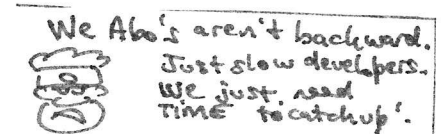 We Abo's aren't backward.
Just slow develpers.
We just need
TIME "to catch up".